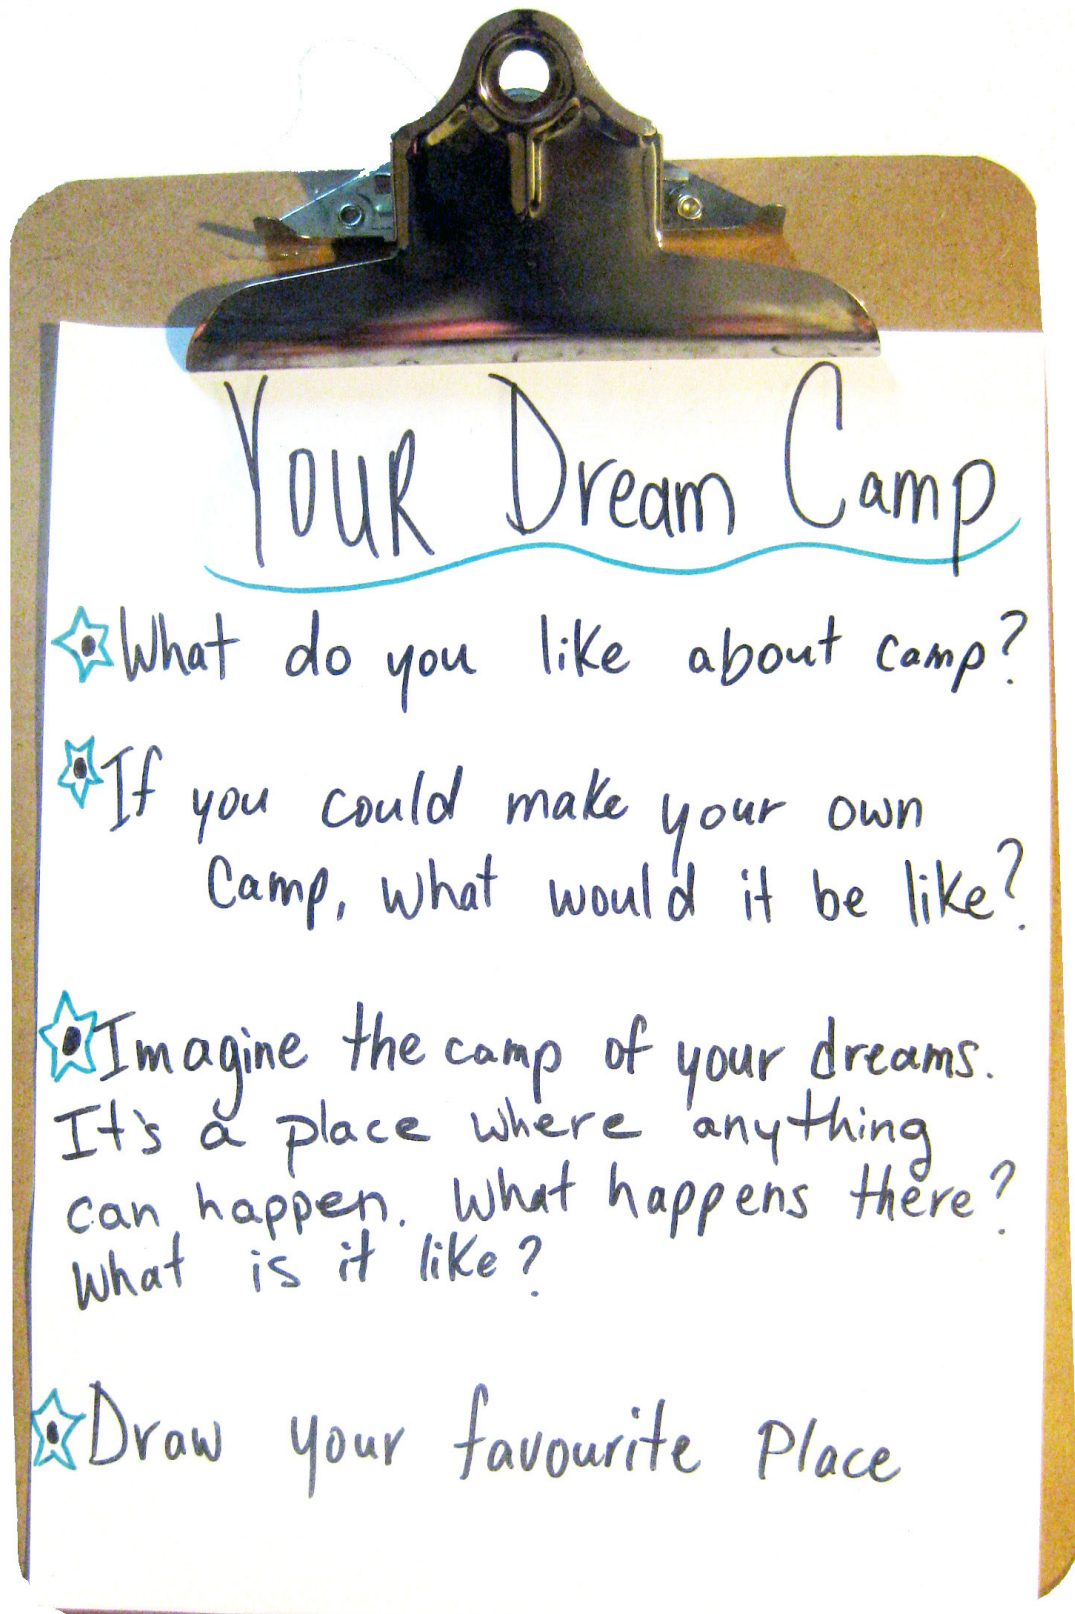 Your Dream Camp
What do you like about camp?
If you could make your own
Camp, what would it be like?
Imagine the camp of your dreams.
It's a place where anything
can happen. What happens there?
What is it like?
Draw your favourite Place